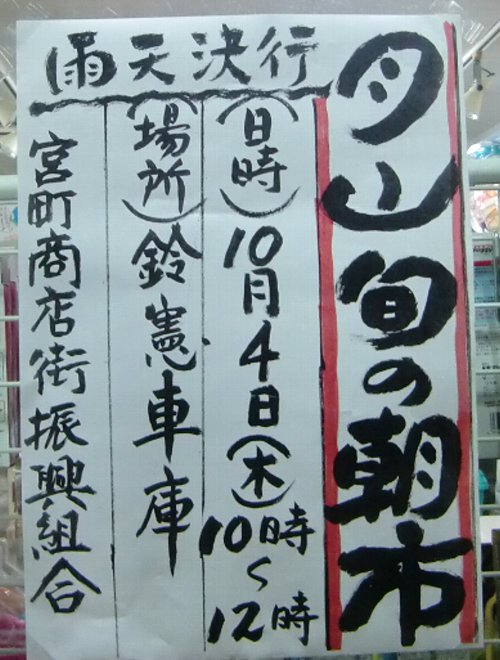 月山旬の朝市
雨天決行
(日時)10月4日(木)10時~12時
(場所)鈴憲車庫
宮町商店街振興組合